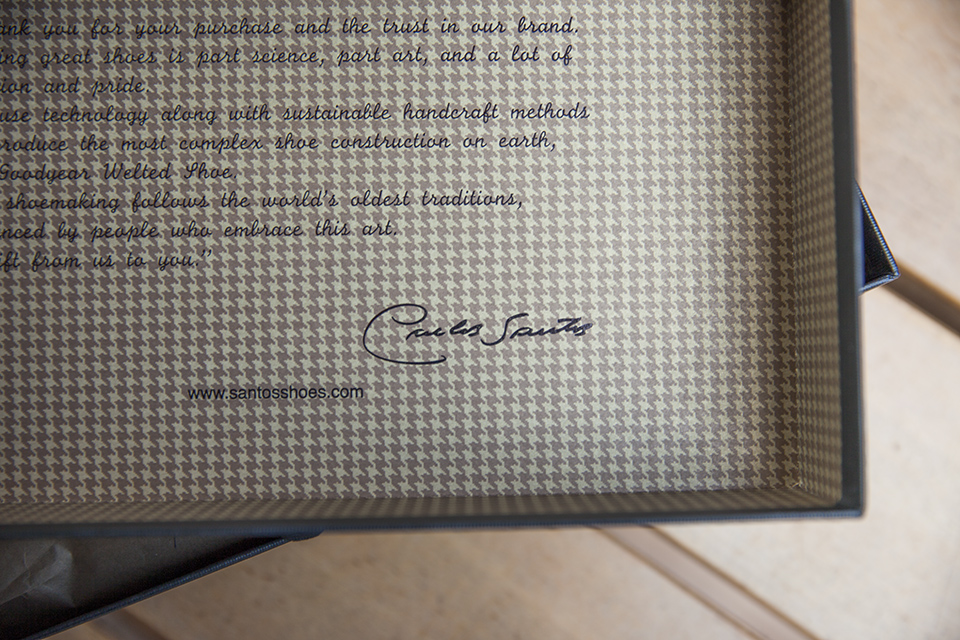 ank you for your purchase and the trust in our brand.
ing great shoes is part science, part art, and a lot of
ion and pride.
use technology along with sustainable handcraft methods
roduce the most complex shoe construction on earth,
Goodyear Welted Shoe.
shoemaking follows the world's oldest traditions,
nced by people who embrace this art.
ift from us to you."
Carlos Santos
www.santosshoes.com